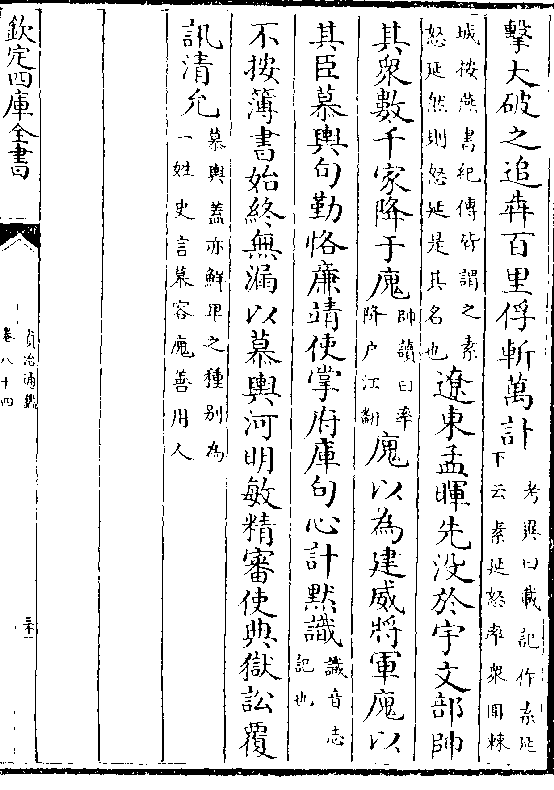 擊大破之追犇百里俘斬萬計考異曰載記作素延下云素延怒率衆圍棘
城按燕書紀傳皆謂之素怒延然則怒延是其名也遼東孟暉先沒於宇文部帥
其衆數千家降于廆帥讀曰率降户江翻廆以為建威將軍廆以
其臣慕輿句勤恪廉靖使掌府庫句心計默識識音志記也
不按簿書始終無漏以慕輿河明敏精審使典獄訟覆
訊清允慕輿蓋亦鮮卑之種别為一姓史言慕容廆善用人
欽定四庫全書
資治通鑑
卷八十四